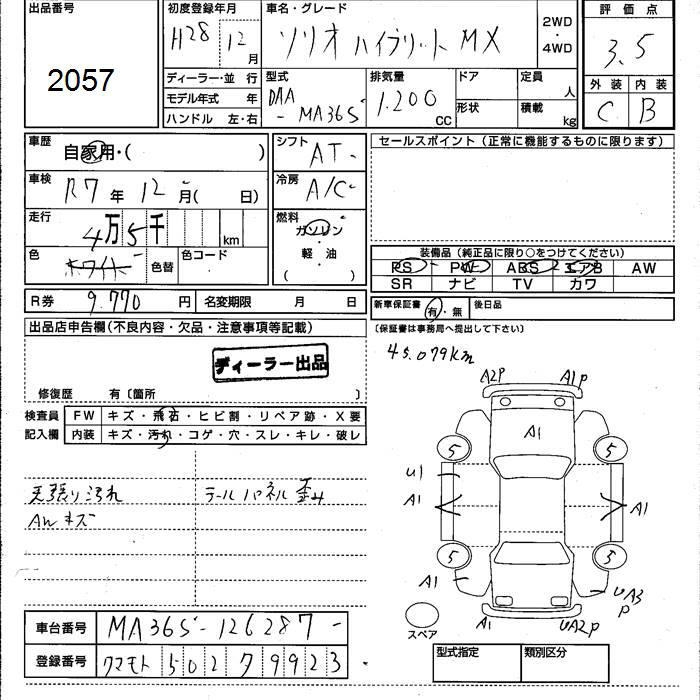 出品番号
2057
初度登録年月
H28 12月
車名・グレード
ソリオ ハイブリット MX
2WD
・
4WD
評価点
3.5
外装 内装
C B
ディーラー・並 行
モデル年式 年
ハンドル 左・右
型式
DAA
- MA36S
排気量
1.200
CC
ドア
形状
定員
人
積載
kg
車歴
自家用・( )
シフト
AT -
車検
R7年12月( 日)
冷房
A/C
走行
4万5千
km
燃料
ガソリン
・
軽・油
( )
色
ホワイト
色替
色コード
R券
9.770 円
名変期限 月 日
セールスポイント (正常に機能するものに限ります)
装備品 (純正品に限り○をつけてください)
PS PW ABS エアB AW
SR ナビ TV カワ
新車保証書 有・無 後日品
(保証書は事務局へ提出して下さい)
出品店申告欄(不良内容・欠品・注意事項等記載)
ディーラー出品
修復歴 有〔箇所 〕
検査員
記入欄
FW キズ・飛石・ヒビ割・リペア跡・X要
内装 キズ・汚れ・コゲ・穴・スレ・キレ・破レ
天張り汚れ
テールパネル歪み
AWキズ
45.079km
A2P A1P
A1
5 5
U1
A1 A1
5 5
A1 UA3
P
A1 UA2P
スペア
車台番号 MA36S-126287-
登録番号 クマモト 502 ﾃ 9923
型式指定 類別区分